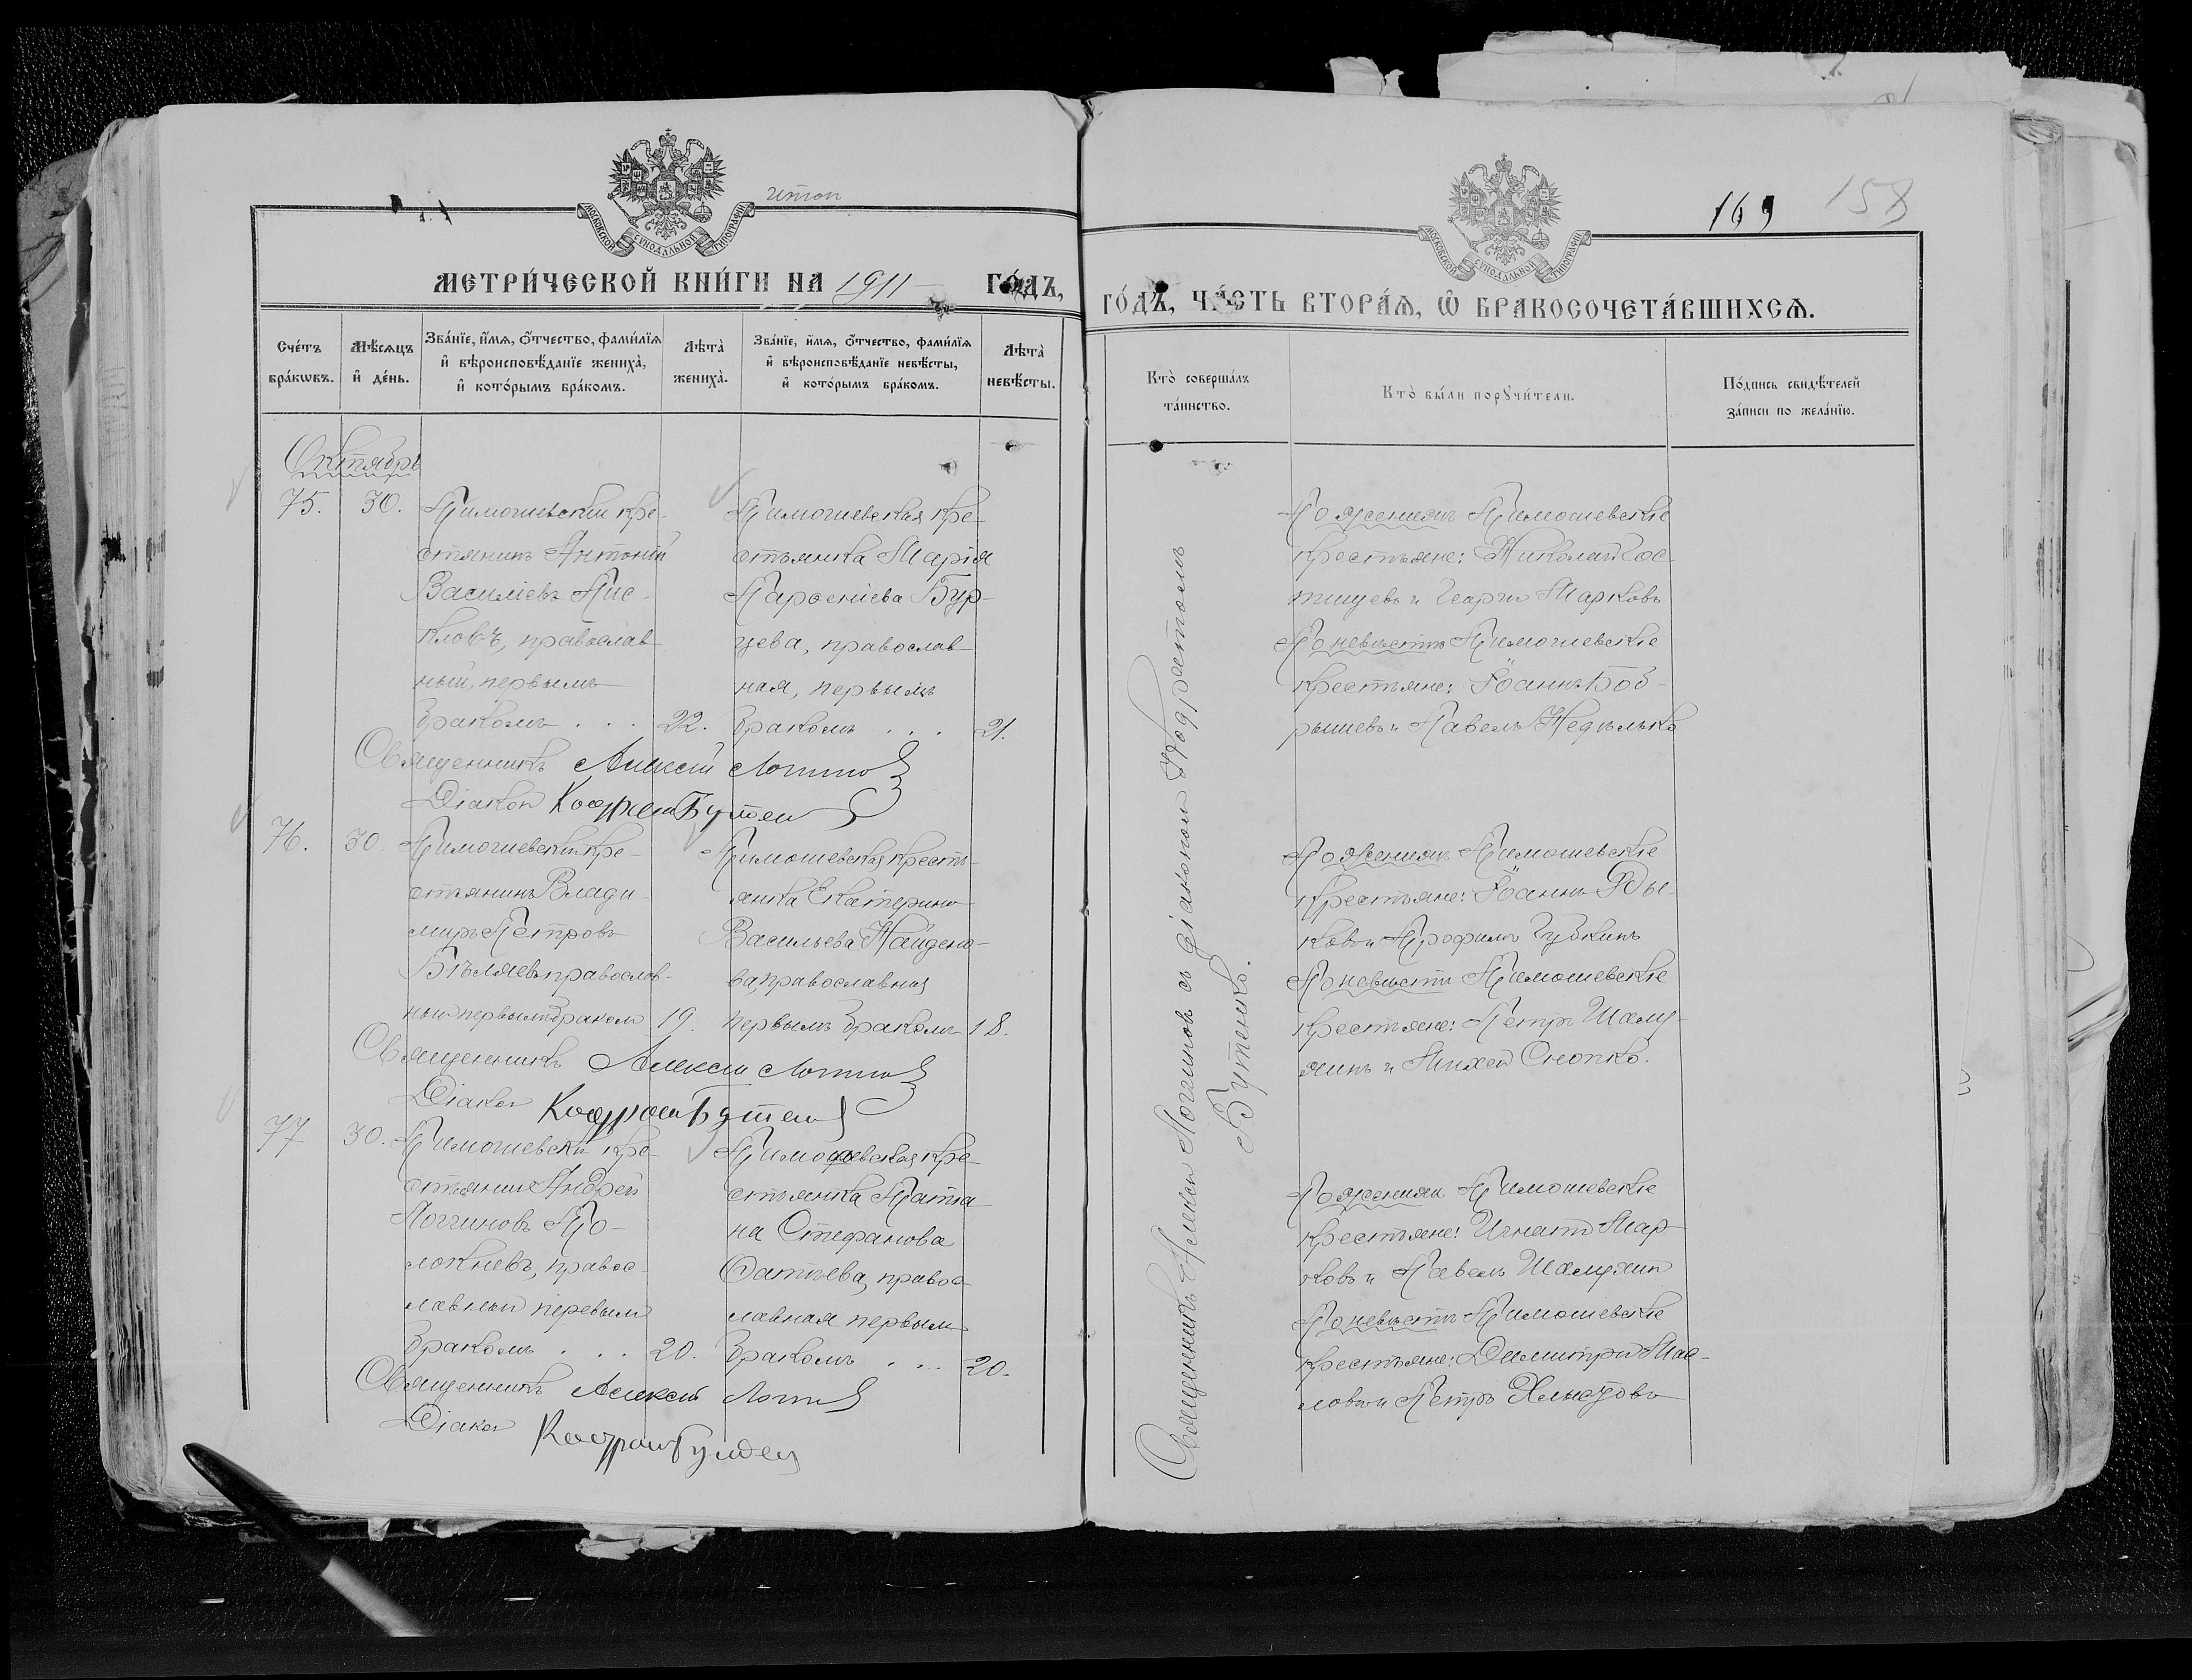 МОСКОВСКОЙ СУНОДАЛЬНОЙ ТИПОГРАФІИ
итоп
МЕТРИ́ЧЕСКОЙ КНИ́ГИ НА 1911 ГО́ДЪ,
Сче́тъ бра́кѡвъ.
Мѣ́сѧцъ и҆ де́нь.
Зва́нїе, и҆́мѧ, ѻ҆́тчество, фами́лїѧ
и҆ вѣроисповѣ́данїе жениха̀,
и҆ кото́рымъ бра́комъ.
Лѣта̀ жениха̀.
Зва́нїе, и҆́мѧ, ѻ҆́тчество, фами́лїѧ
и҆ вѣроисповѣ́данїе невѣ́сты,
и҆ кото́рымъ бра́комъ.
Лѣта̀ невѣ́сты.
Октябрь
75. 30.
Тимошевскій кре-
стянинъ Антоній
Василіевъ
православ-
ный, первымъ
бракомъ . . . 22.
Тимошевская кре-
стьянка Марія
Парѳеніева Бур-
цева, православ-
ная, первымъ
бракомъ . . . 21.
Священникъ Алексій
Діакон
76. 30.
Тимошевскій кре-
стьянинъ Влади-
миръ Петровъ
Бѣляевъ православ-
ный первымъ бракомъ 19.
Тимошевская кресть-
янка Екатерина
Васильева Найдено-
ва, православная
первымъ бракомъ 18.
Священникъ Алексій
Діакон
77 30.
Тимошевскій кре-
стьянин Андрей
Логгиновъ То-
локневъ, правос-
лавный перевым
бракомъ . . . 20.
Тимошевская кре-
стьянка Татіа-
на Стефанова
Фатѣева, правос-
лавная первымъ
бракомъ . . . 20.
Священникъ Алексій
Діакон
169 158
МОСКОВСКОЙ СУНОДАЛЬНОЙ ТИПОГРАФІИ
ГО́ДЪ, ЧА́СТЬ ВТОРА́Ѧ, Ѡ҆ БРАКОСОЧЕТА́ВШИХСѦ.
Кто̀ соверша́лъ
та́инство.
Кто̀ бы́ли порꙋчи́тели.
По́дпись свидѣ́телей
за́писи по жела́нїю.
Священникъ Алексій Логгиновъ съ діакономъ Кодратомъ
Бутенко.
По женихѣ Тимошевскіе
крестьяне: Николай Гос-
тищевъ и Георгій Марковъ
По невѣстѣ Тимошевскіе
крестьяне: Іоаннъ Боб-
рышевъ и Павелъ Недѣлько
По женихѣ Тимошевскіе
крестьяне: Іоаннъ Яды-
ковъ и Трофимъ Губкинъ
По невѣстѣ Тимошевскіе
крестьяне: Петръ Шаму-
и Михей Снопко.
По женихѣ Тимошевскіе
крестьяне: Игнатій Мар-
ковъ и Павелъ
По невѣстѣ Тимошевскіе
крестьяне: Димитрій Мас-
ловъ и Петръ Хлыстовъ